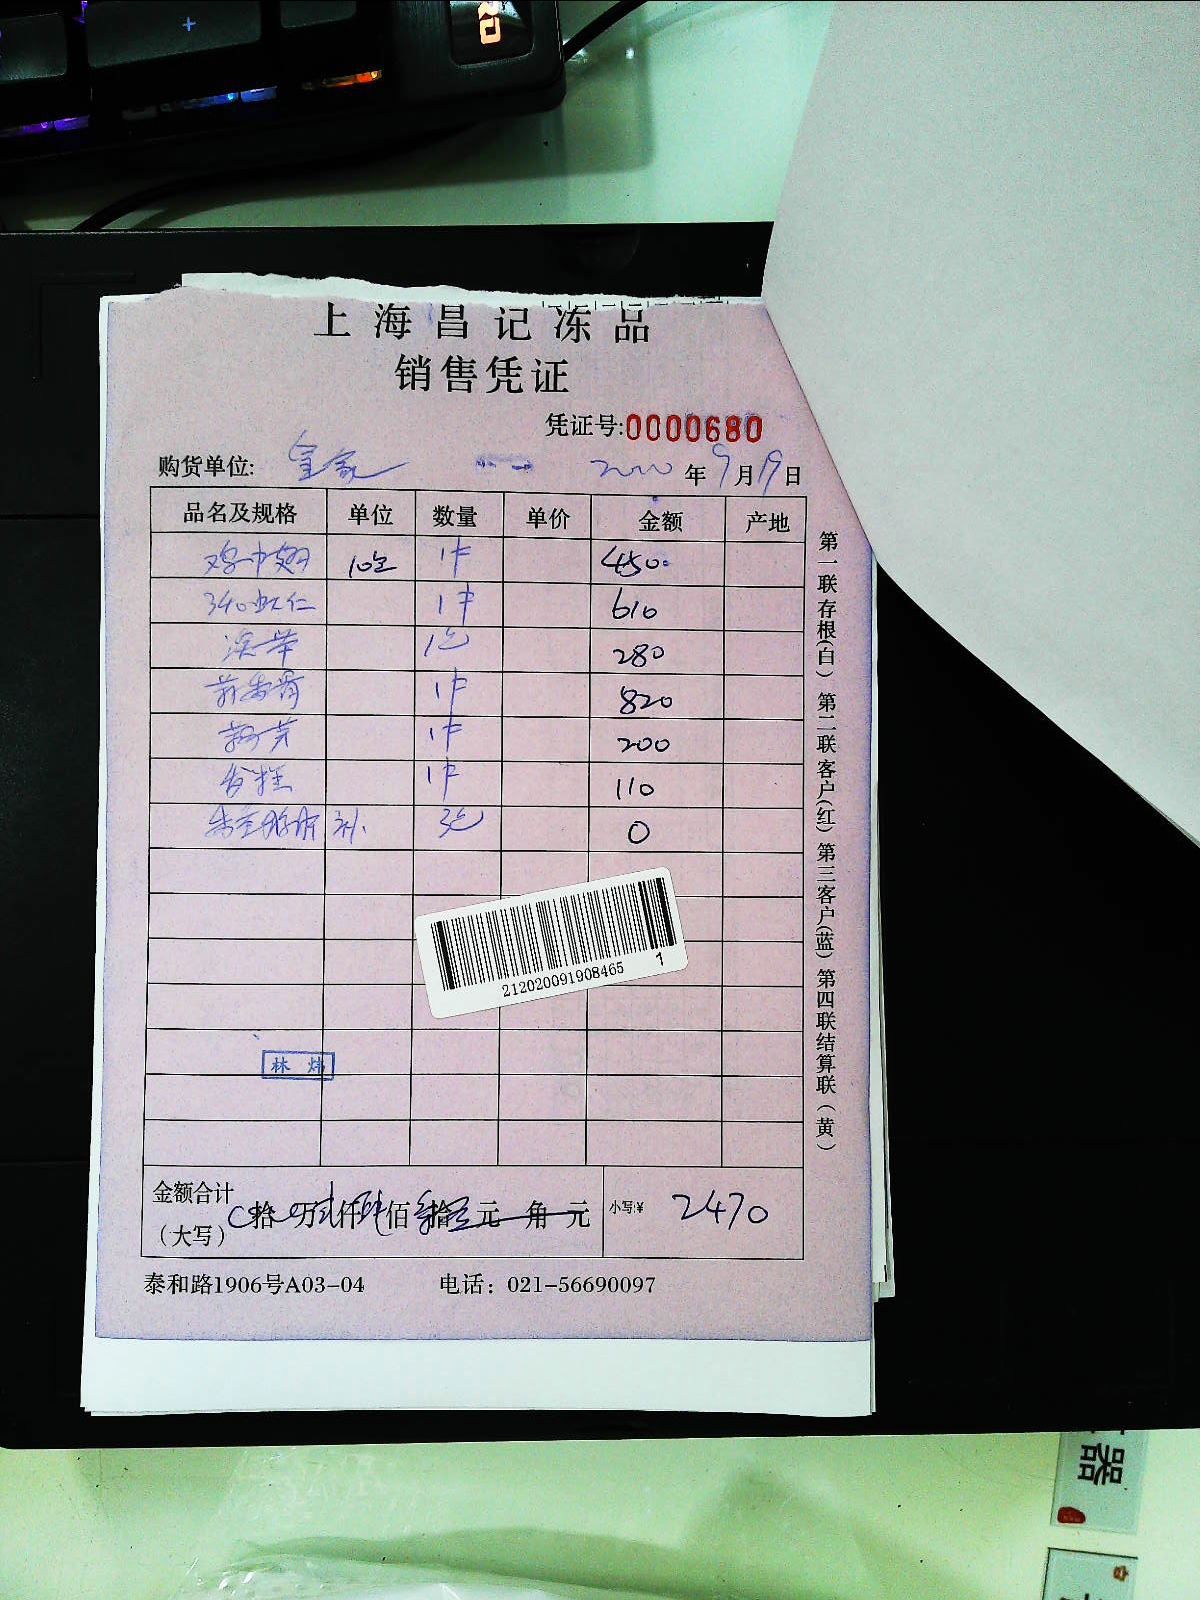 上海昌记冻品
销售凭证
凭证号:0000680
购货单位: 2020年9月19日
品名及规格 单位 数量 单价 金额 产地
鸡中翅 10包 1件 450
340虾仁 1件 610
1包 280
1件 820
1件 200
1件 110
补 3包 0
212020091908465 1
林炜
金额合计
(大写) 拾 万贰仟肆佰 拾 元 角 元 小写¥ 2470
泰和路1906号A03-04 电话: 021-56690097
第一联存根(白) 第二联客户(红) 第三客户(蓝) 第四联结算联(黄)
器